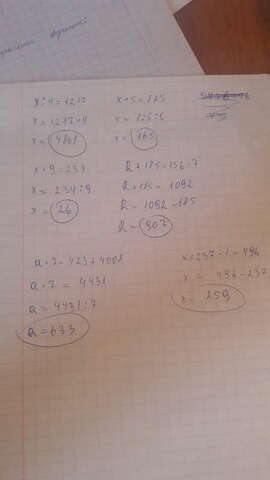 x:4=1217
x=1217·4
x=4868
x·5=825
x=825:5
x=165
x·9=234
x=234:9
x=26
k+185=156·7
k+185=1092
k=1092-185
k=907
a·7=423+4008
a·7=4431
a=4431:7
a=633
x+237·1=496
x=496-237
x=259